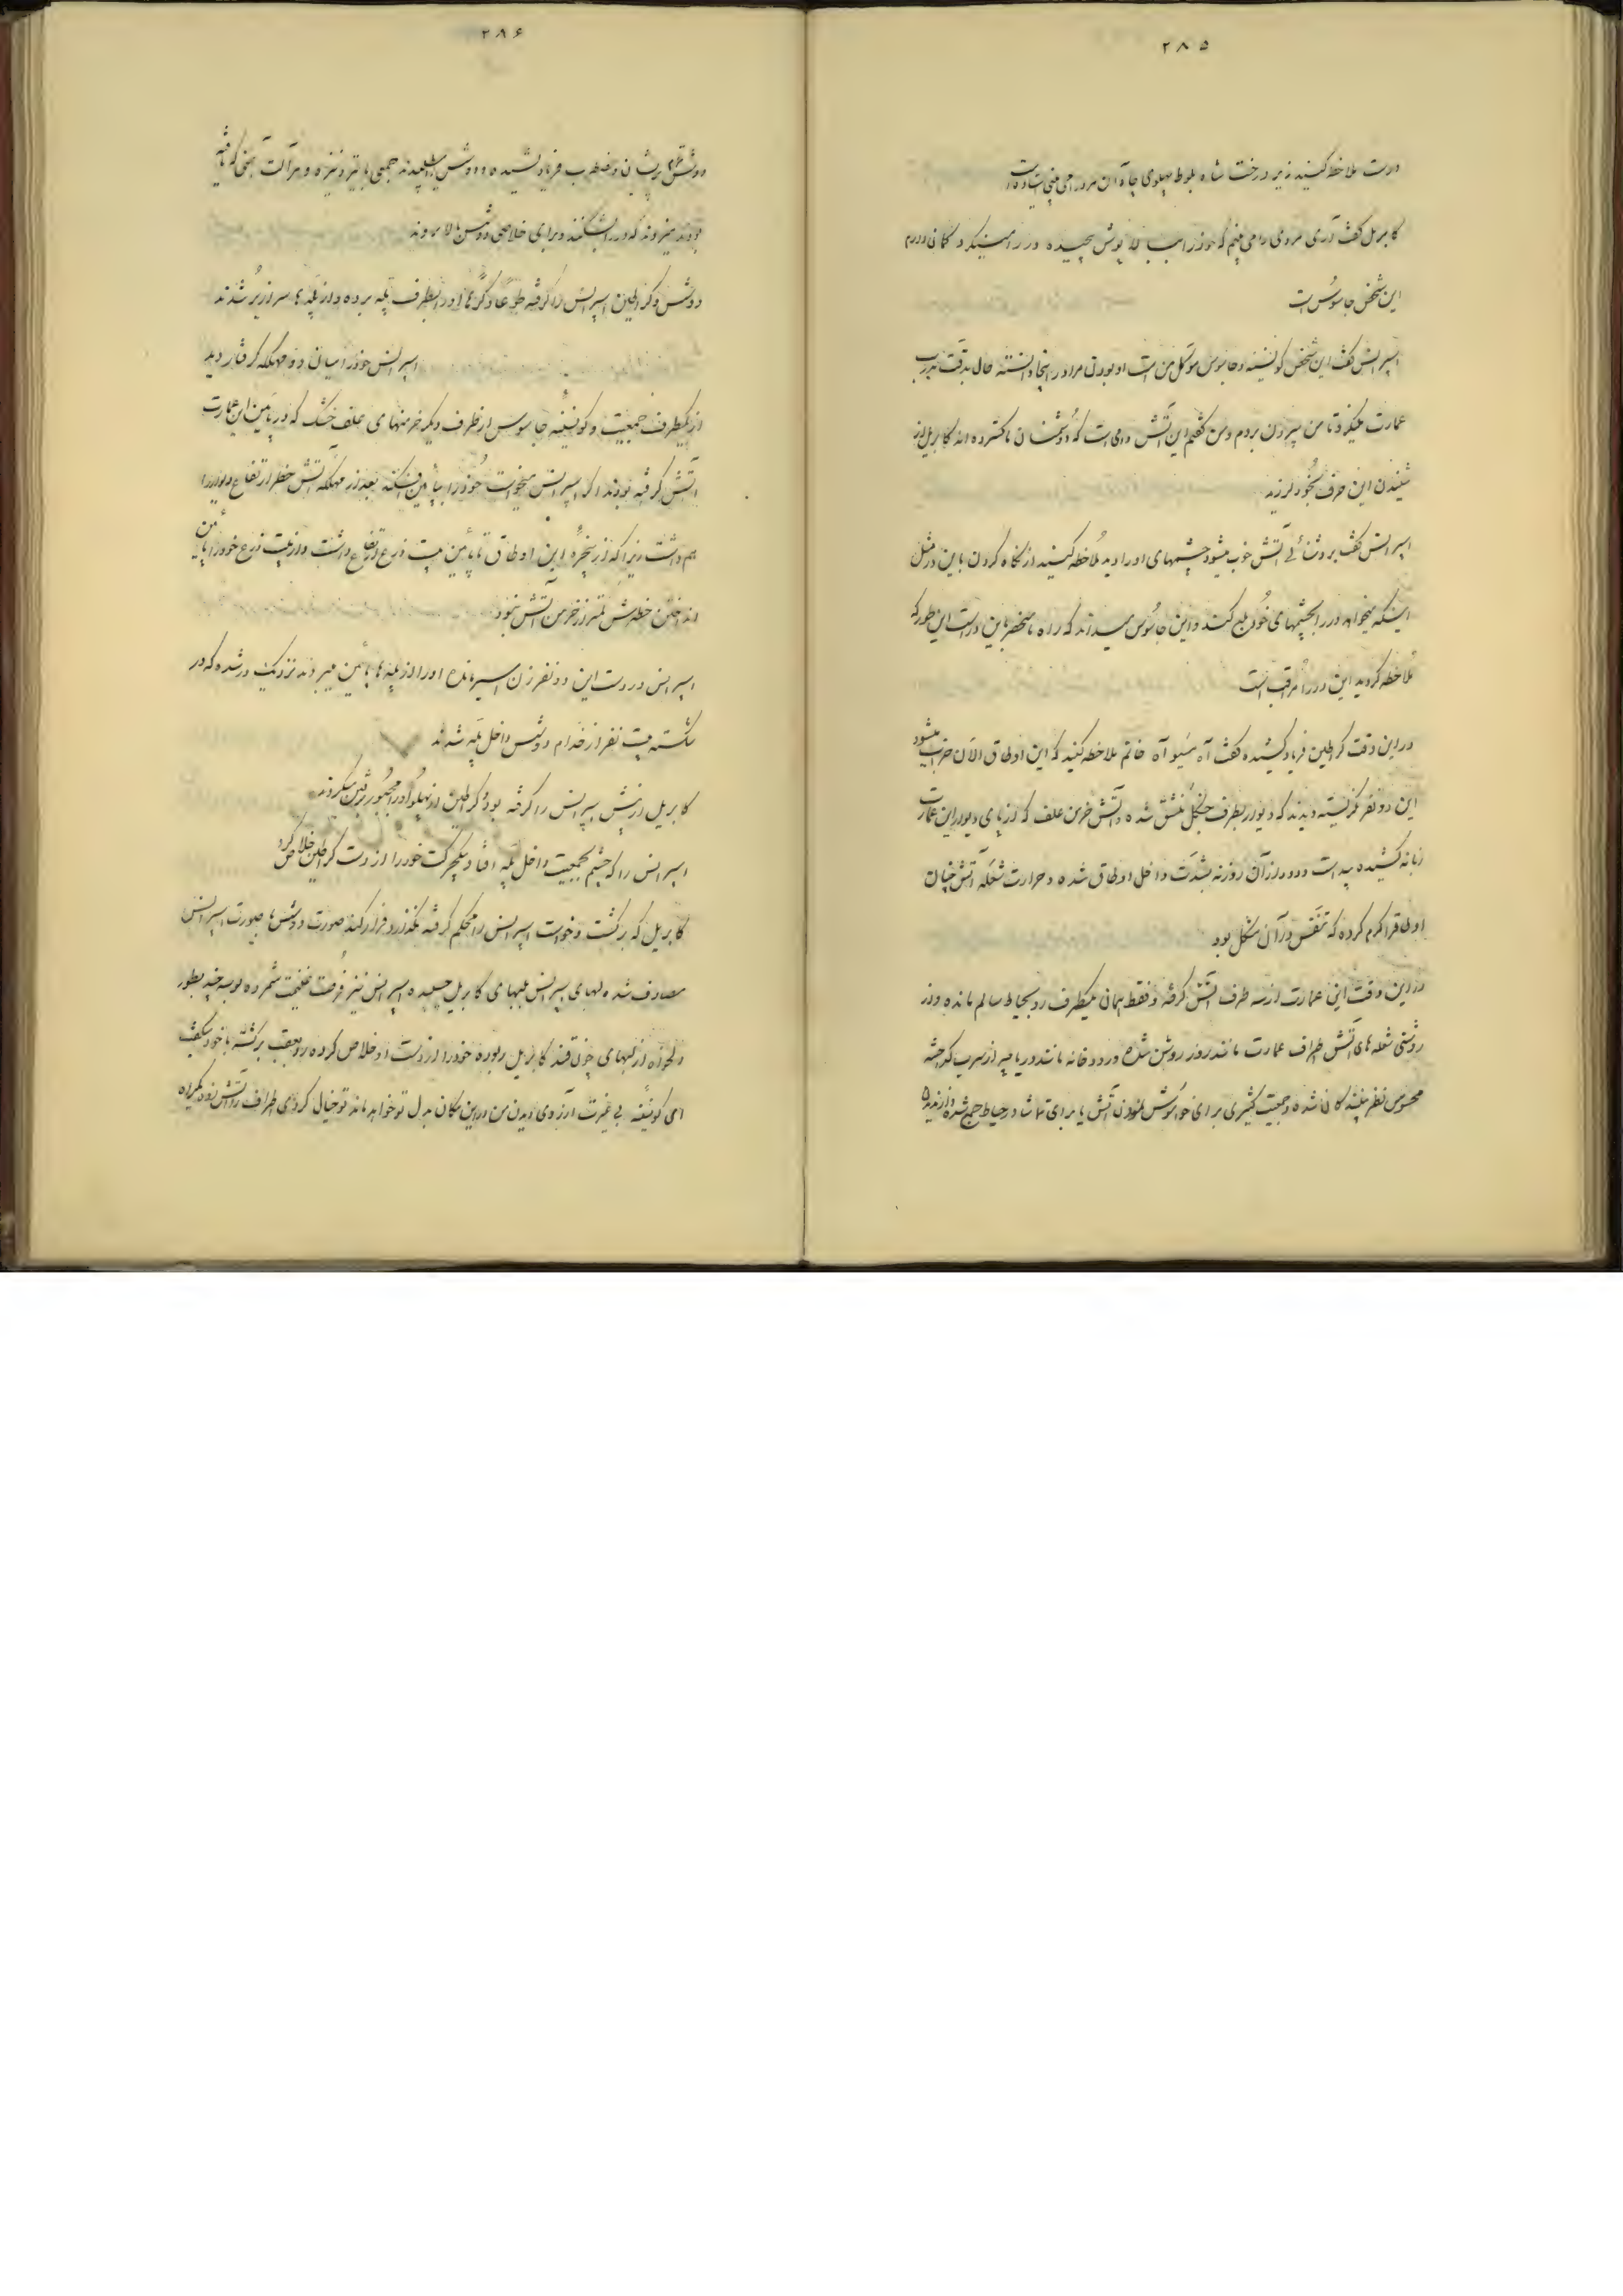 ۲۸۵
درست ملاحظه کنید زیر درخت شاه بلوط پهلوی چاه آن مرد را می بینی ایستاده است
کابریل گفت آری مردی را می بینم که خود را بالاپوش پیچیده و در را می نگرد گمان دارم
این شخص جاسوس است
اسپرانس گفت این شخص کونسینه و جاسوس موکل من است او بودن مرا در اینجا دانسته حال بدقت بدرب
عمارت میگردد تا من بیرون بروم و من گفتم این آتش دامی است که دشمنان ما گسترده اند کابریل از
شنیدن این حرف بخود لرزید
اسپرانس گفت بروشنائی آتش خوب میشود چشمهای او را دید ملاحظه کنید از نگاه کردن باین در مثل
اینکه میخواهد در را بچشمهای خود بلع کند و این جاسوس میداند که راه ما منحصر باین در است این طور که
ملاحظه کردید این در را مراقب است
در این وقت کراطین فریاد کشیده گفت آه مسیو آه خانم ملاحظه کنید که این اوطاق الآن خراب میشود
این دو نفر نگریسته دیدند که دیوار بطرف جنگل منشق شده و آتش خرمن علف که در پای دیوار این عمارت
زبانه کشیده پیداست و دود از آن روزنه بشدت داخل اوطاق شده و حرارت شعله آتش چنان
اوطاقرا گرم کرده که تنفس در آن مشکل بود
در این وقت این عمارت از سه طرف آتش گرفته و فقط همان یکطرف رو بحیاط سالم مانده و از
روشنی شعله های آتش اطراف عمارت مانند روز روشن شده و رودخانه مانند دریا پر از سرب گداخته
محسوس نظر بینندگان شده و جمعیت کثیری برای خواموش نمودن آتش یا برای تماشا در حیاط جمع شده
۲۸۶
دوشس پریشان و مضطرب فریاد کشیده و دوشس را میطلبیدند جمعی با تبر و نیزه و هر آلت جنگی که یافته
بودند میزدند که در را بشکنند و برای خلاصی دوشس بالا بروند
دوشس و کراطین اسپرانس را گرفته طوعاً و کرهاً او را بطرف پله برده و از پله ها سرازیر شدند
اسپرانس خود را میان دو مهلکه گرفتار دید
از یکطرف جمعیت و کونسینه جاسوس از طرف دیگر خرمنهای علف خشک که در پائین این عمارت
آتش گرفته بودند اگر اسپرانس میخواست خود را بپائین افکند بعد از مهلکه آتش خطر ارتفاع دیوار را
هم داشت زیرا که از پنجره این اوطاق تا پائین بیست ذرع ارتفاع داشت و از بیست ذرع خود را بپائین
انداختن خطرش کمتر از خرمن آتش نبود
اسپرانس در دست این دو نفر زن اسیر مانده او را از پله ها پائین میبردند نزدیک در شده که در
شکسته بیست نفر از خدام دوشس داخل پله شدند
کابریل از پیش اسپرانس را گرفته بود و کراطین از پهلو او را مجبور برفتن میکردند
اسپرانس را که چشم بجمعیت داخل پله افتاد بیکحرکت خود را از دست کراطین خلاص کرد
کابریل که برگشت و خواست اسپرانس را محکم گرفته نگذارد فرار کند صورت دوشس با صورت اسپرانس
مصادف شده لبهای اسپرانس بلبهای کابریل چسبیده اسپرانس نیز فرصت غنیمت شمرده بوسه چند بطور
دلخواه از لبهای چون قند کابریل ربوده خود را از دست او خلاص کرده رو بعقب برگشته با خود میگفت
ای کونسینه بی غیرت آرزوی دیدن من در این مکان بدل تو خواهد ماند تو خیال کردی اطراف را آتش زده